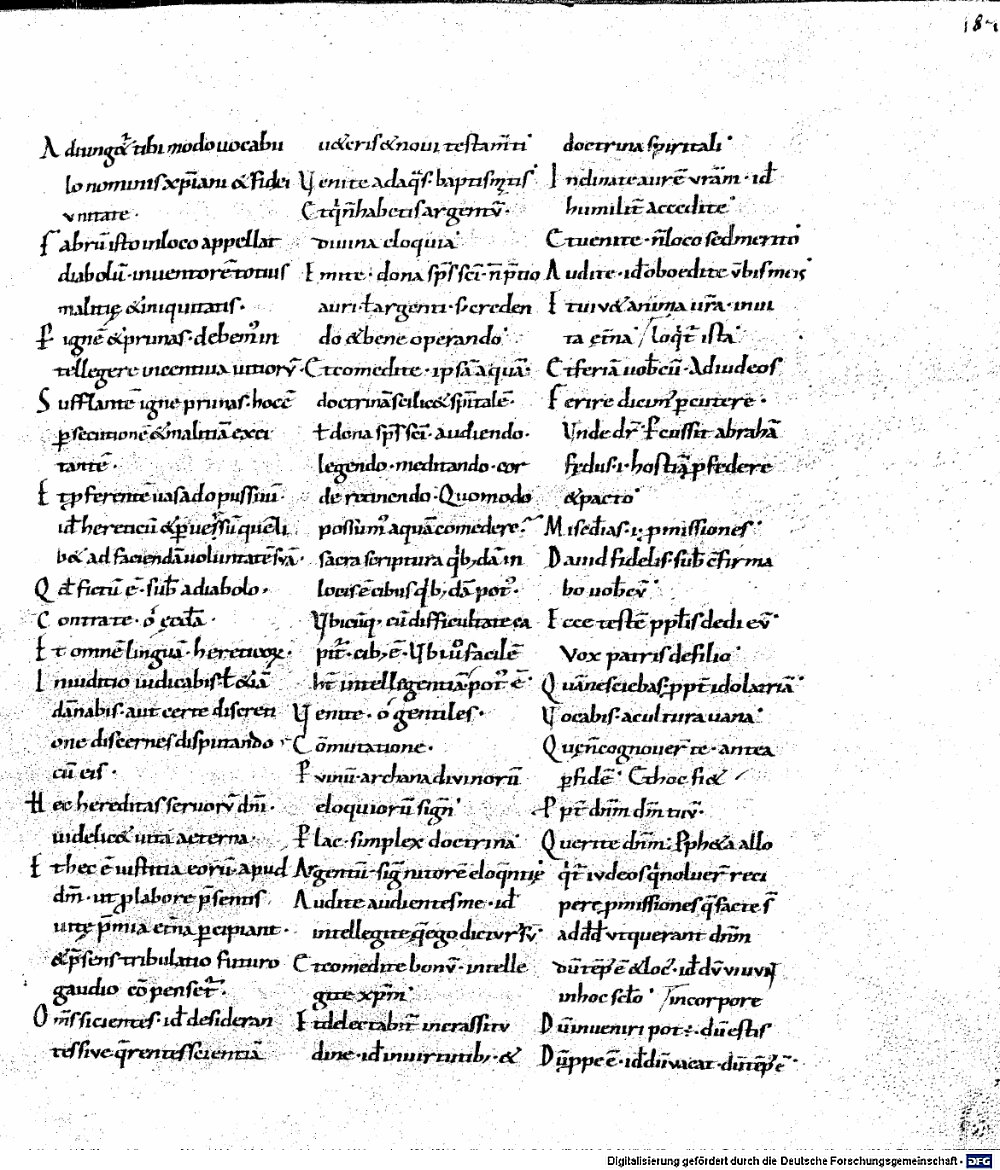 187
Adiunget᷑ tibi modo uocabu
lo nominis xp̄iani & fidei
vnitate·
Fabrū isto in loco appellat
diabolū· inuentorē totius
malitię & iniquitatis·
Et ignē & prunas· debem᷒ in
tellegere incentiua uitiorv̄·
Sufflantē igne prunas· hoc ē
p̱secutionē & malitiā exci
tantē·
Et ꝓferentē uasa do pussimū·
id ÷ hereticū & p̱uersū quē li
b& ad faciendā uoluntatē svā·
Qd̄ fictū ē· sub̄ a diabolo·
Contra te· o᷑ eccl̄a·
Et omnē linguā· hereticoꝝ·
In iuditio iudicabis· ł &iā
dānabis· aut certe discreti
one discernes disputando
cū eis·
Hęc hereditas seruorv̄ dn̄i·
uidelic& uita aeterna·
Et hec ē iustitia eorū· apud
dm̄· ut ꝓ labore p̄sentis
uitę p̄mia et̄na p̱cipiant·
& p̄sens tribulatio futuro
gaudio cōpenset᷑·
Om̄s sicientes· id desideran
tes sive q̄rentes scientiā
u&eris & noui testam̄ti·
Uenite ad aq̄s· baptismatis·
Et q̇ n̄ habetis argentv̄·
diuina eloquia·
Emite· dona sp̄s sc̄i· n̄ p̄tio
auri ł argenti· s; creden
do & bene operando·
Et comedite· ipsā aquā·
doctrinā scilic& sp̄italē·
ł dona sp̄s sc̄i· audiendo·
legendo· meditando· cor
de retinendo· Quomodo
possum᷒ aquā comedere·
sacra scriptura q̇b;dā in
locis ē cibus q̇b;dā pot᷒·
Ubicūq· cū difficultate ca
pit᷑· cib; ē· Ubi u᷒ facile ē
h̄t intellegentiā· pot᷒ ē·
Uenite· o᷑ gentiles·
Cōmutatione·
P vinū· archana diuinorū
eloquiorū sign̄·
P lac· simplex doctrina·
Argentū· sign̄ nitorē eloq̄ntię·
Audite audientes me· id
intellegite q̄ ego dictvr sv̄·
Et comedite bonv̄· intelle
gite xp̄m·
Et delectabit᷑ in crassitv
dine· id in uirtutib; &
doctrina spiritali·
Inclinate aurē vr̄am· id
humilit̄ accedite·
Et uenite· n̄ loco sed merito·
Audite· id oboedite v̄bis meis
Et viu& anima ur̄a· in ui
ta et̄na / loq̇t᷑ ista·
Et feriā uob̄cū· Ad iudeos
Ferire dicim᷒ p̱cutere·
Unde dr̄· Percussit abrahā
fędus· i· hostiā p fędere
& pacto·
Misc̄dias· i· ꝓmissiones·
Dauid fidelis· sub̄ c̄firma
bo uob̄cv̄·
Ecce testē ppl̄is dedi ev̄·
Vox patris de filio·
Quā nesciebas· ppt̄ idolatriā·
Uocabis· a cultura uana·
Quę n̄ cognouer̄ te· antea
p̱ fidē· Et hoc fi&
Ppt̄ dn̄m dm̄ tuv̄·
Querite dn̄m· Ppheta allo
q̇t᷑ ivdeos q̇ noluer̄ reci
pere ꝓmissiones q̄ factę s̄
ad dd̄ vt querant dn̄m
dū tēp᷒ ē & loc᷒· id dv̄ viuv̄t
in hoc sc̄lo· / in corpore
Dū inueniri pot᷑· dū estis
Dū ꝓpe ē· id dū vacat· dū tēp᷒ ē·
Digitalisierung gefördert durch die Deutsche Forschungsgemeinschaft - DFG